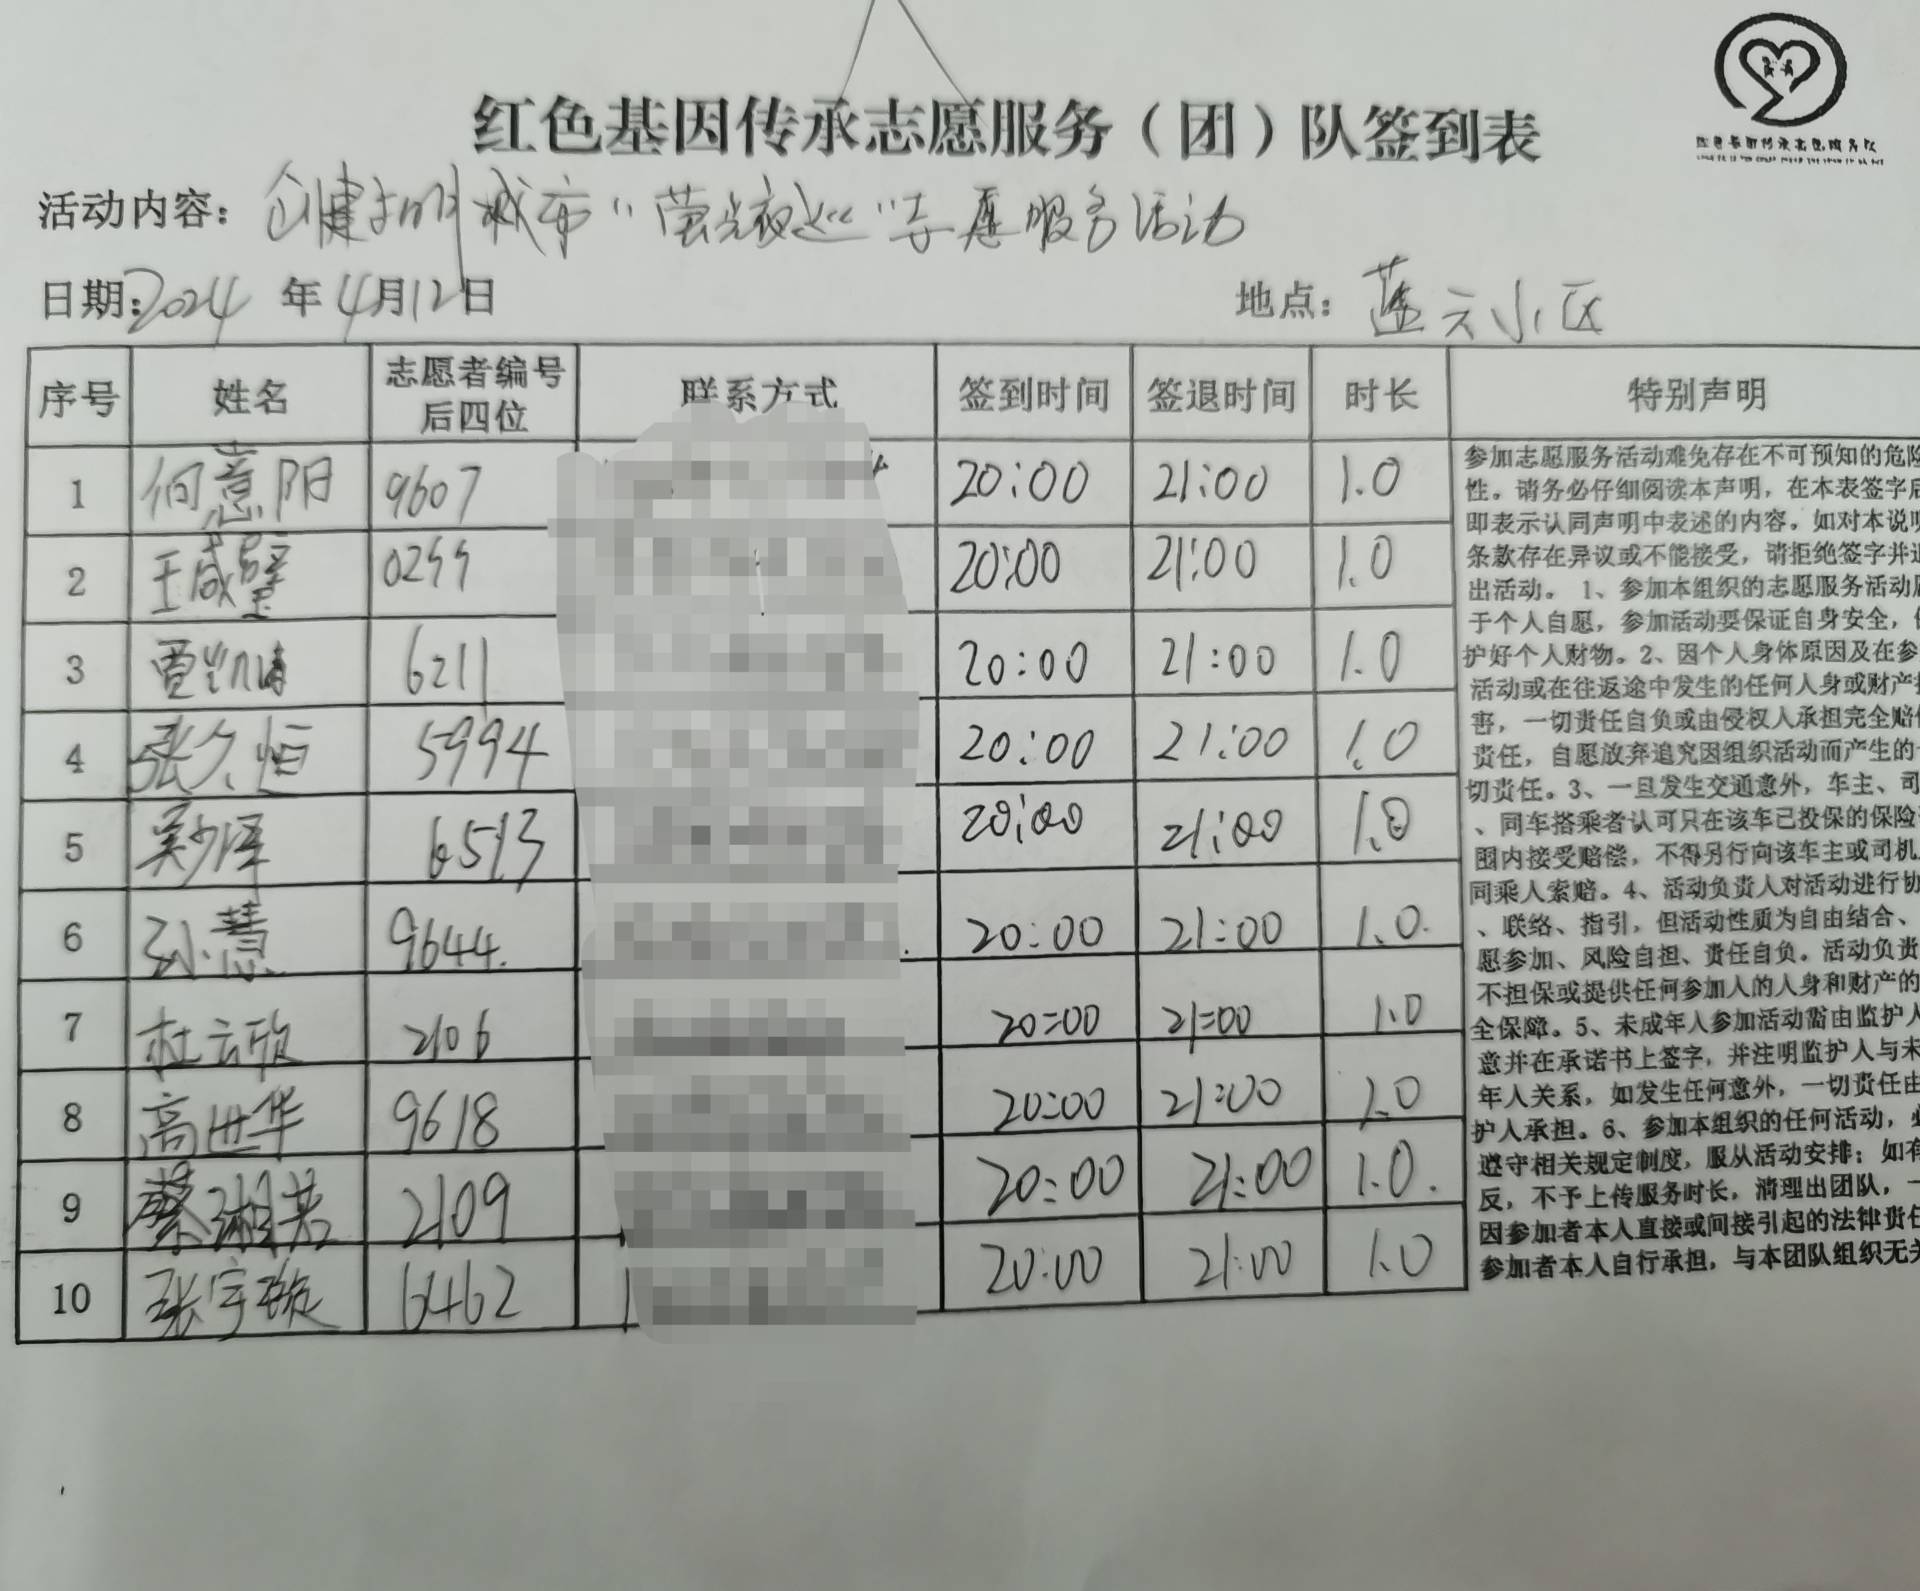 红色基因传承志愿服务（团）队签到表
活动内容：创建文明城市“萤光夜巡”志愿服务活动
日期：2024年4月12日 地点：蓝云小区
序号 姓名 志愿者编号后四位 联系方式 签到时间 签退时间 时长 特别声明
1 何意阳 9607 20:00 21:00 1.0
2 王咸璧 0299 20:00 21:00 1.0
3 贾凯 6211 20:00 21:00 1.0
4 张久恒 5994 20:00 21:00 1.0
5 吴少泽 6513 20:00 21:00 1.0
6 孙慧 9644. 20:00 21:00 1.0.
7 杜云欣 2106 20:00 21:00 1.0
8 高进华 9618 20:00 21:00 1.0
9 蔡湘芸 2109 20:00 21:00 1.0.
10 张宇璇 6462 20:00 21:00 1.0
参加志愿服务活动难免存在不可预知的危险
性。请务必仔细阅读本声明，在本表签字后
即表示认同声明中表述的内容。如对本说明
条款存在异议或不能接受，请拒绝签字并退
出活动。 1、参加本组织的志愿服务活动属
于个人自愿，参加活动要保证自身安全，保
护好个人财物。2、因个人身体原因及在参
活动或在往返途中发生的任何人身或财产损
害，一切责任自负或由侵权人承担完全赔偿
责任，自愿放弃追究因组织活动而产生的一
切责任。3、一旦发生交通意外，车主、司
、同车搭乘者认可只在该车已投保的保险
围内接受赔偿，不得另行向该车主或司机
同乘人索赔。4、活动负责人对活动进行协
、联络、指引，但活动性质为自由结合、
愿参加、风险自担、责任自负。活动负责
不担保或提供任何参加人的人身和财产的
全保障。5、未成年人参加活动需由监护人
意并在承诺书上签字，并注明监护人与未
年人关系，如发生任何意外，一切责任由
护人承担。6、参加本组织的任何活动，必
遵守相关规定制度，服从活动安排；如有
反，不予上传服务时长，清理出团队，一
因参加者本人直接或间接引起的法律责任
参加者本人自行承担，与本团队组织无关